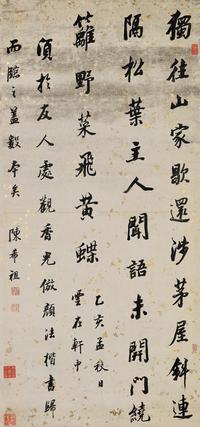 獨往山家歇還涉茅屋斜連
隔松葉主人聞語未開門繞
籬野菜飛黃蝶
乙亥孟秋日
雲在軒中
頃於友人處觀香光倣顏法楷書歸
而臨之蓋數本矣
陳希祖